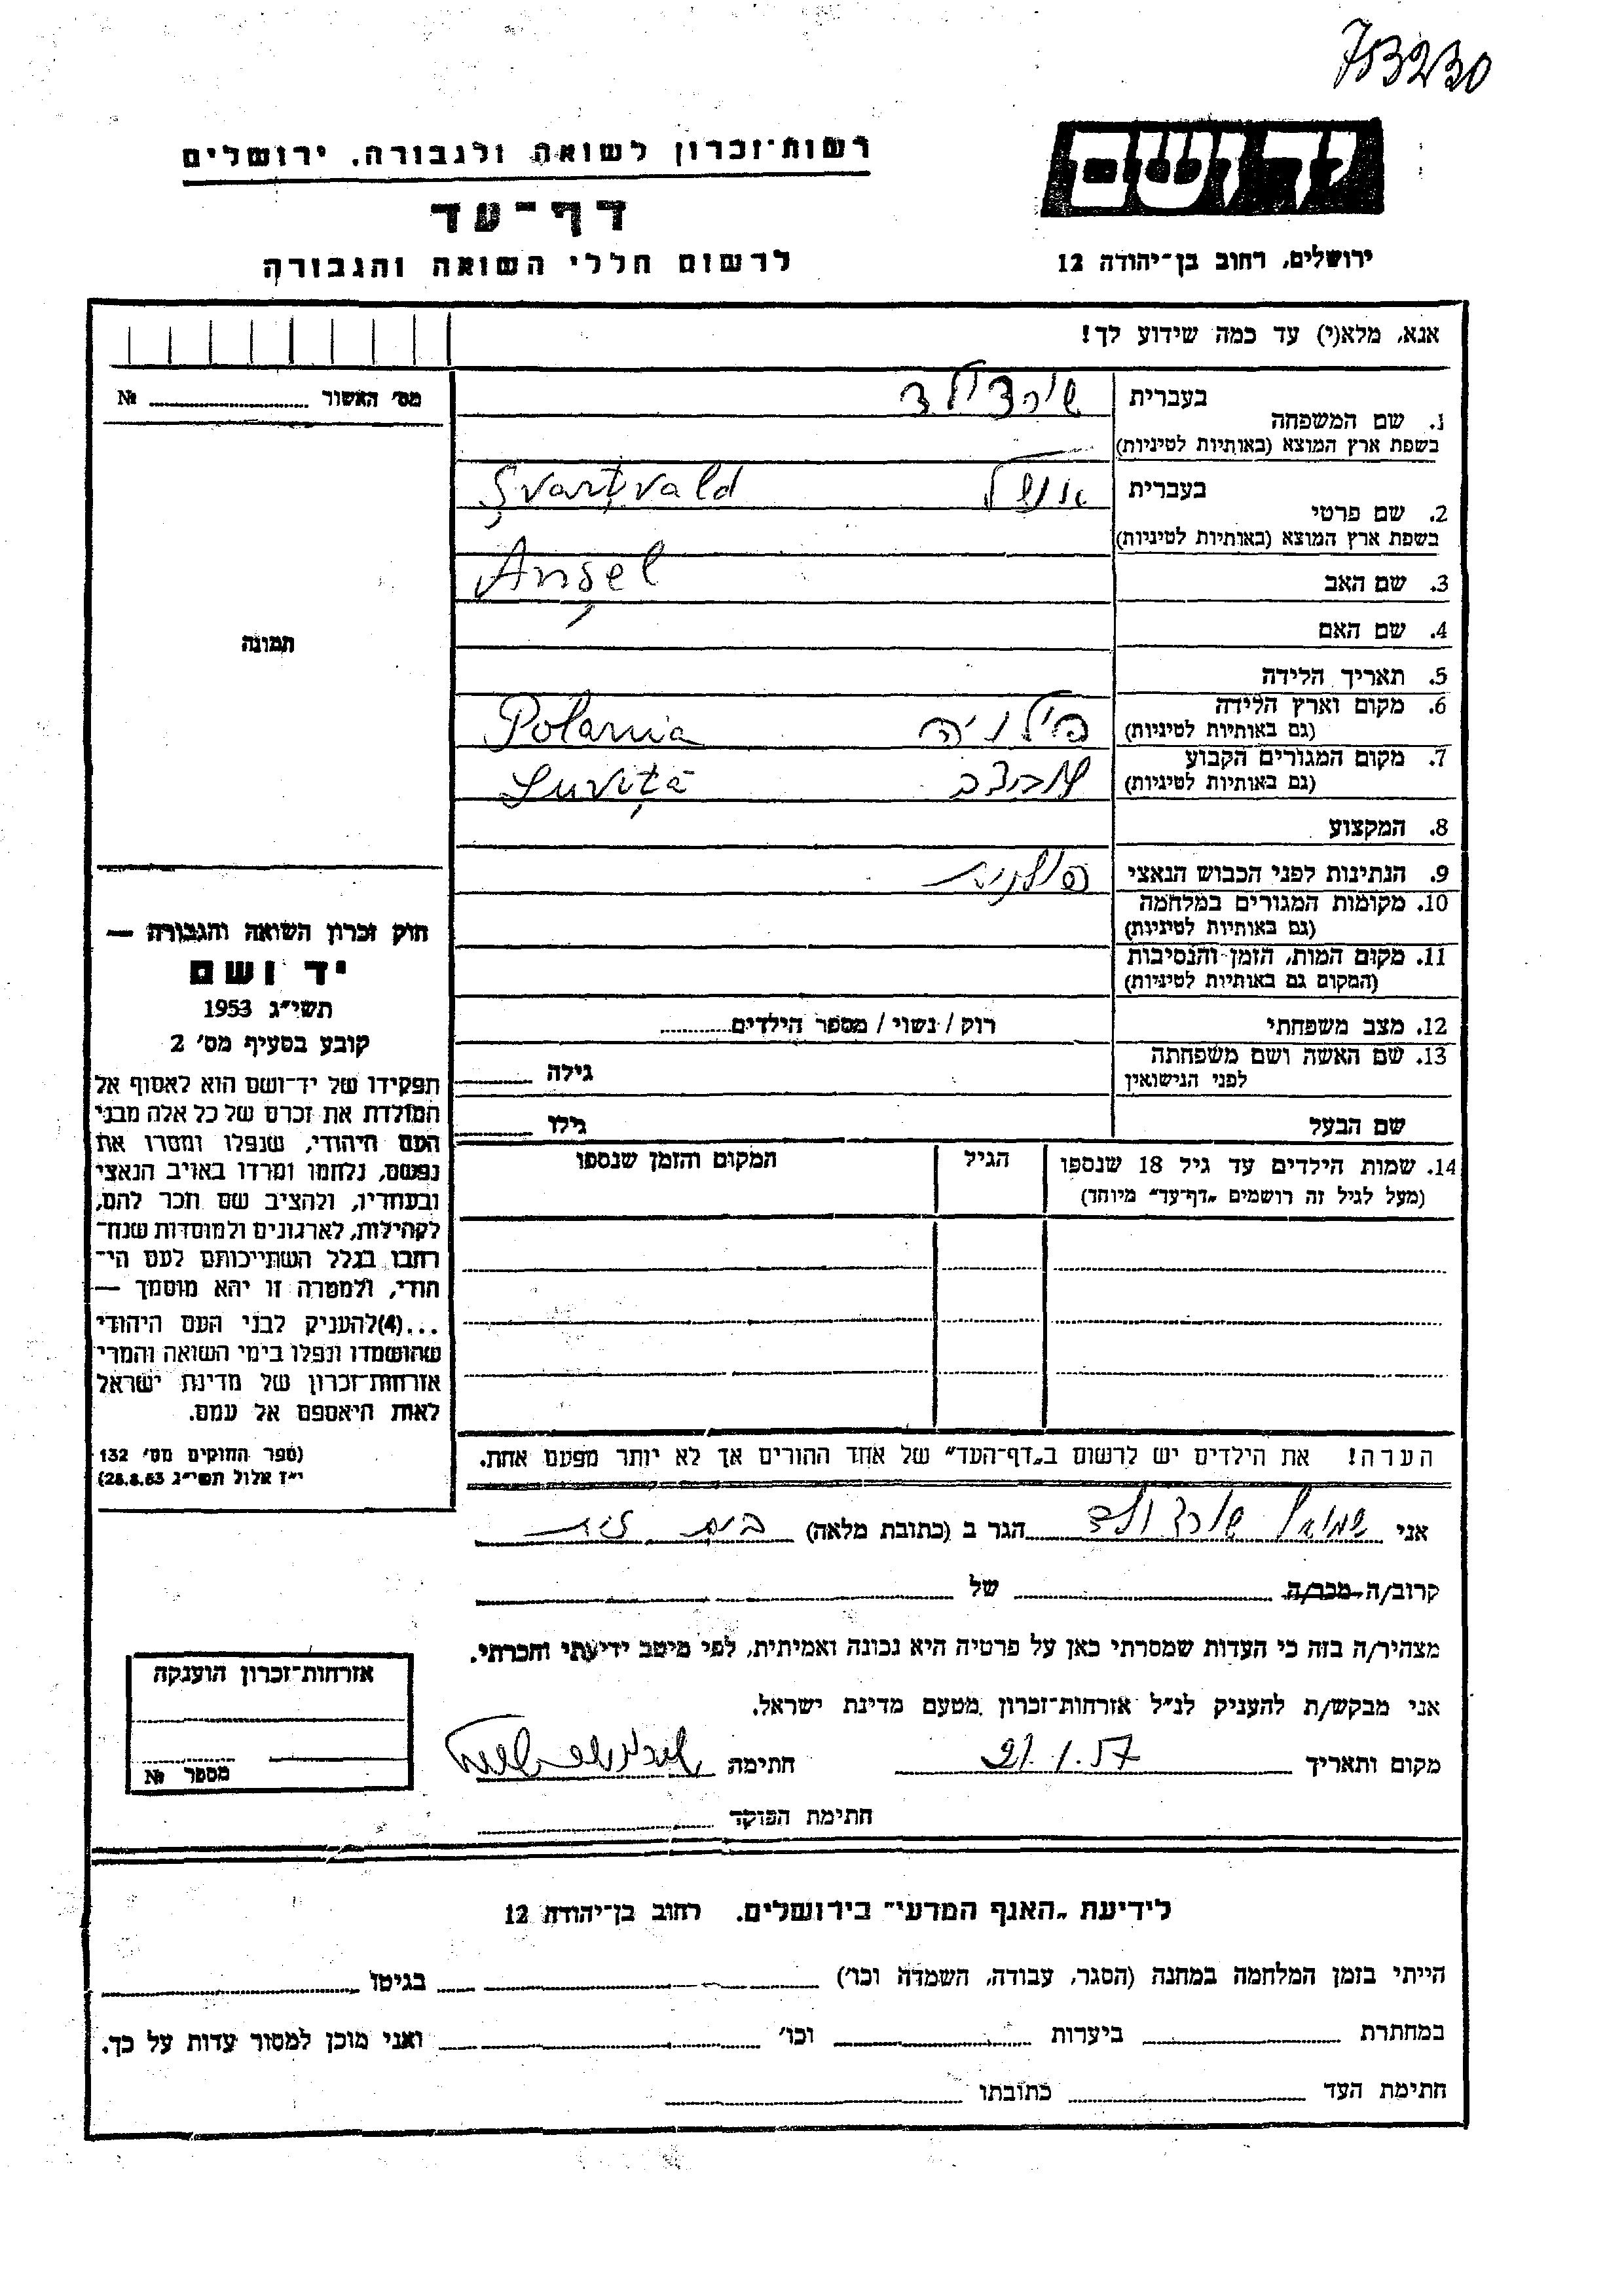 753230
יד ושם
רשות־זכרון לשואה ולגבורה, ירושלים
דף־עד
לרשום חללי השואה והגבורה
ירושלים, רחוב בן־יהודה 12
אנא, מלא(י) עד כמה שידוע לך!
מס׳ האשור № 
1. שם המשפחה
בעברית
בשפת ארץ המוצא (באותיות לטיניות)
Şvarţvald
2. שם פרטי
בעברית אנשל
בשפת ארץ המוצא (באותיות לטיניות)
Anşel
3. שם האב
4. שם האם
5. תאריך הלידה
6. מקום וארץ הלידה
(גם באותיות לטיניות)
פולניה Polania
7. מקום המגורים הקבוע
(גם באותיות לטיניות)
8. המקצוע
9. הנתינות לפני הכבוש הנאצי פולנית
10. מקומות המגורים במלחמה
(גם באותיות לטיניות)
11. מקום המות, הזמן והנסיבות
(המקום גם באותיות לטיניות)
12. מצב משפחתי רוק / נשוי / מספר הילדים
13. שם האשה ושם משפחתה
לפני הנישואין
גילה
שם הבעל גילו
14. שמות הילדים עד גיל 18 שנספו
(מעל לגיל זה רושמים „דף־עד״ מיוחד)
הגיל
המקום והזמן שנספו
תמונה
חוק זכרון השואה והגבורה —
יד ושם
תשי״ג 1953
קובע בסעיף מס׳ 2
תפקידו של יד־ושם הוא לאסוף אל
המולדת את זכרם של כל אלה מבני
העם היהודי, שנפלו ומסרו את
נפשם, נלחמו ומרדו באויב הנאצי
ובעוזריו, ולהציב שם וזכר להם,
לקהילות, לארגונים ולמוסדות שנח־
רבו בגלל השתייכותם לעם הי־
הודי, ולמטרה זו יהא מוסמך —
...(4)להעניק לבני העם היהודי
שהושמדו ונפלו בימי השואה והמרי
אזרחות־זכרון של מדינת ישראל
לאות היאספם אל עמם.
(ספר החוקים מס׳ 132
י״ז אלול תשי״ג 28.8.53)
הערה! את הילדים יש לרשום ב„דף־העד״ של אחד ההורים אך לא יותר מפעם אחת.
אני שמואל שורצולד הגר ב (כתובת מלאה) בית
קרוב/ה מכר/ה של
מצהיר/ה בזה כי העדות שמסרתי כאן על פרטיה היא נכונה ואמיתית, לפי מיטב ידיעתי והכרתי.
אני מבקש/ת להעניק לנ״ל אזרחות־זכרון מטעם מדינת ישראל.
מקום ותאריך 21.1.57 חתימה
חתימת הפוקד
אזרחות־זכרון הוענקה
מספר №
לידיעת „האגף המדעי״ בירושלים. רחוב בן־יהודה 12
הייתי בזמן המלחמה במחנה (הסגר, עבודה, השמדה וכו׳) בגיטו
במחתרת ביערות וכו׳ ואני מוכן למסור עדות על כך.
חתימת העד כתובתו